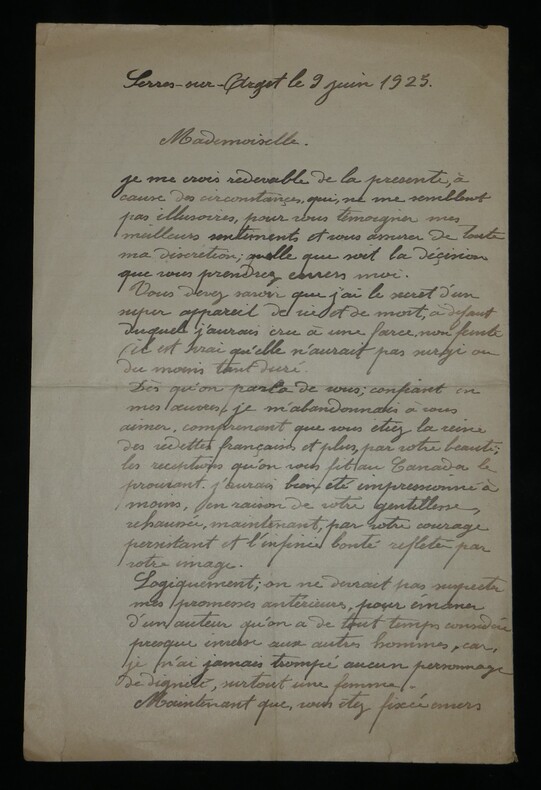 Serres-sur-Arget le 9 juin 1925.
Mademoiselle.
je me crois redevable de la presente, à
cause des circonstances, qui, ne me semblent
pas illusoires, pour vous temoigner mes
meilleurs sentiments et vous assurer de toute
ma discretion; quelle que soit la décision
que vous prendrez envers moi.
Vous devez savoir que j'ai le secret d'un
super appareil de vie et de mort, à defaut
duquel j'aurais cru à une farce, non feinte
il est vrai qu'elle n'aurait pas surgi ou
du moins tant duré.
Dès qu'on parla de vous; confiant en
mes œuvres, je m'abandonnais à vous
aimer, comprenant que vous étiez la reine
des vedettes françaises et plus, par votre beauté;
les receptions qu'on vous fit au Canada le
prouvant. j'aurais bien été impressionné à
moins, en raison de votre gentillesse,
rehaussée, maintenant, par votre courage
persistant et l'infinie bonté refletée par
votre image.
Logiquement; on ne devrait pas suspecter
mes promesses antérieurs, pour émaner
d'un auteur qu'on a de tout temps considéré
presque inverse aux autres hommes, car,
je n'ai jamais trompé aucun personnage
de dignité, surtout une femme.
Maintenant que, vous êtes fixée envers